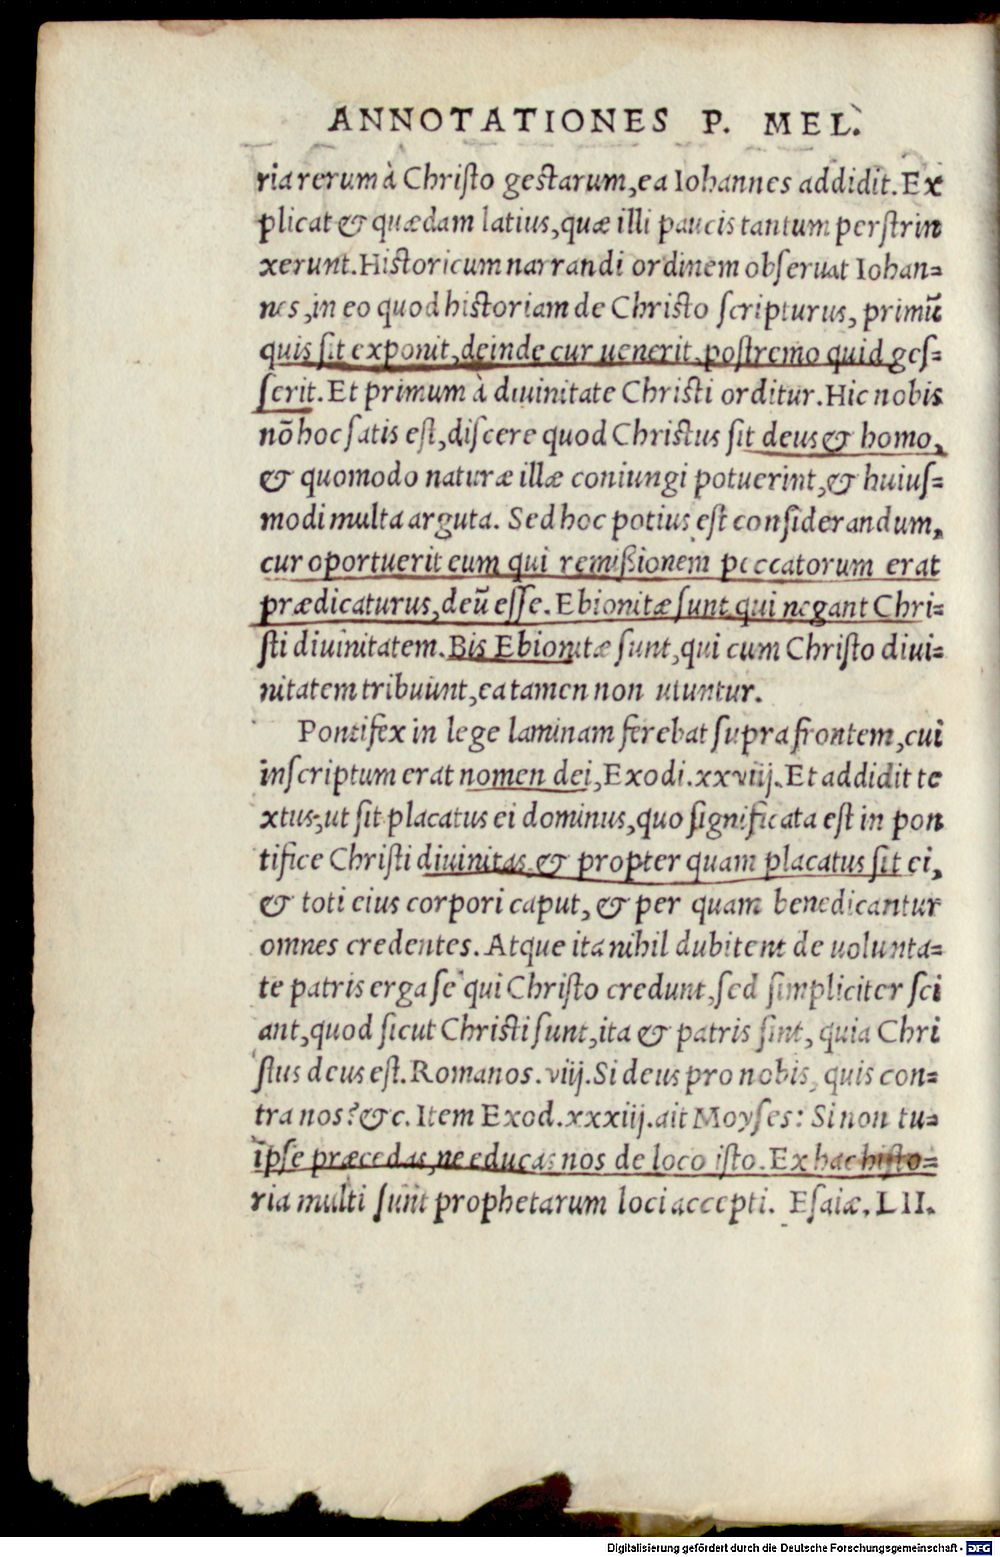 ANNOTATIONES P. MEL.
ria rerum à Christo gestarum, ea Iohannes addidit. Ex
plicat & quædam latius, quæ illi paucis tantum perstrin
xerunt. Historicum narrandi ordinem obseruat Iohan=
nes, in eo quod historiam de Christo scripturus, primū
quis sit exponit, deinde cur uenerit, postremo quid ges=
serit. Et primum à diuinitate Christi orditur. Hic nobis
nō hoc satis est, discere quod Christus sit deus & homo,
& quomodo naturæ illæ coniungi potuerint, & huius=
modi multa arguta. Sed hoc potius est considerandum,
cur oportuerit eum qui remißionem peccatorum erat
prædicaturus, deū esse. Ebionitæ sunt qui negant Chri=
sti diuinitatem. Bis Ebionitæ sunt, qui cum Christo diui=
nitatem tribuunt, ea tamen non utuntur.
Pontifex in lege laminam ferebat supra frontem, cui
inscriptum erat nomen dei, Exodi. xxviij. Et addidit te
xtus, ut sit placatus ei dominus, quo significata est in pon
tifice Christi diuinitas & propter quam placatus sit ei,
& toti eius corpori caput, & per quam benedicantur
omnes credentes. Atque ita nihil dubitent de uolunta=
te patris erga se qui Christo credunt, sed simpliciter sci
ant, quod sicut Christi sunt, ita & patris sint, quia Chri
stus deus est. Romanos. viij. Si deus pro nobis, quis con=
tra nos? &c. Item Exod. xxxiij. ait Moyses: Si non tu=
ipse præcedas, ne educas nos de loco isto. Ex hac histo=
ria multi sunt prophetarum loci accepti. Esaiæ. LII.
Digitalisierung gefördert durch die Deutsche Forschungsgemeinschaft - DFG